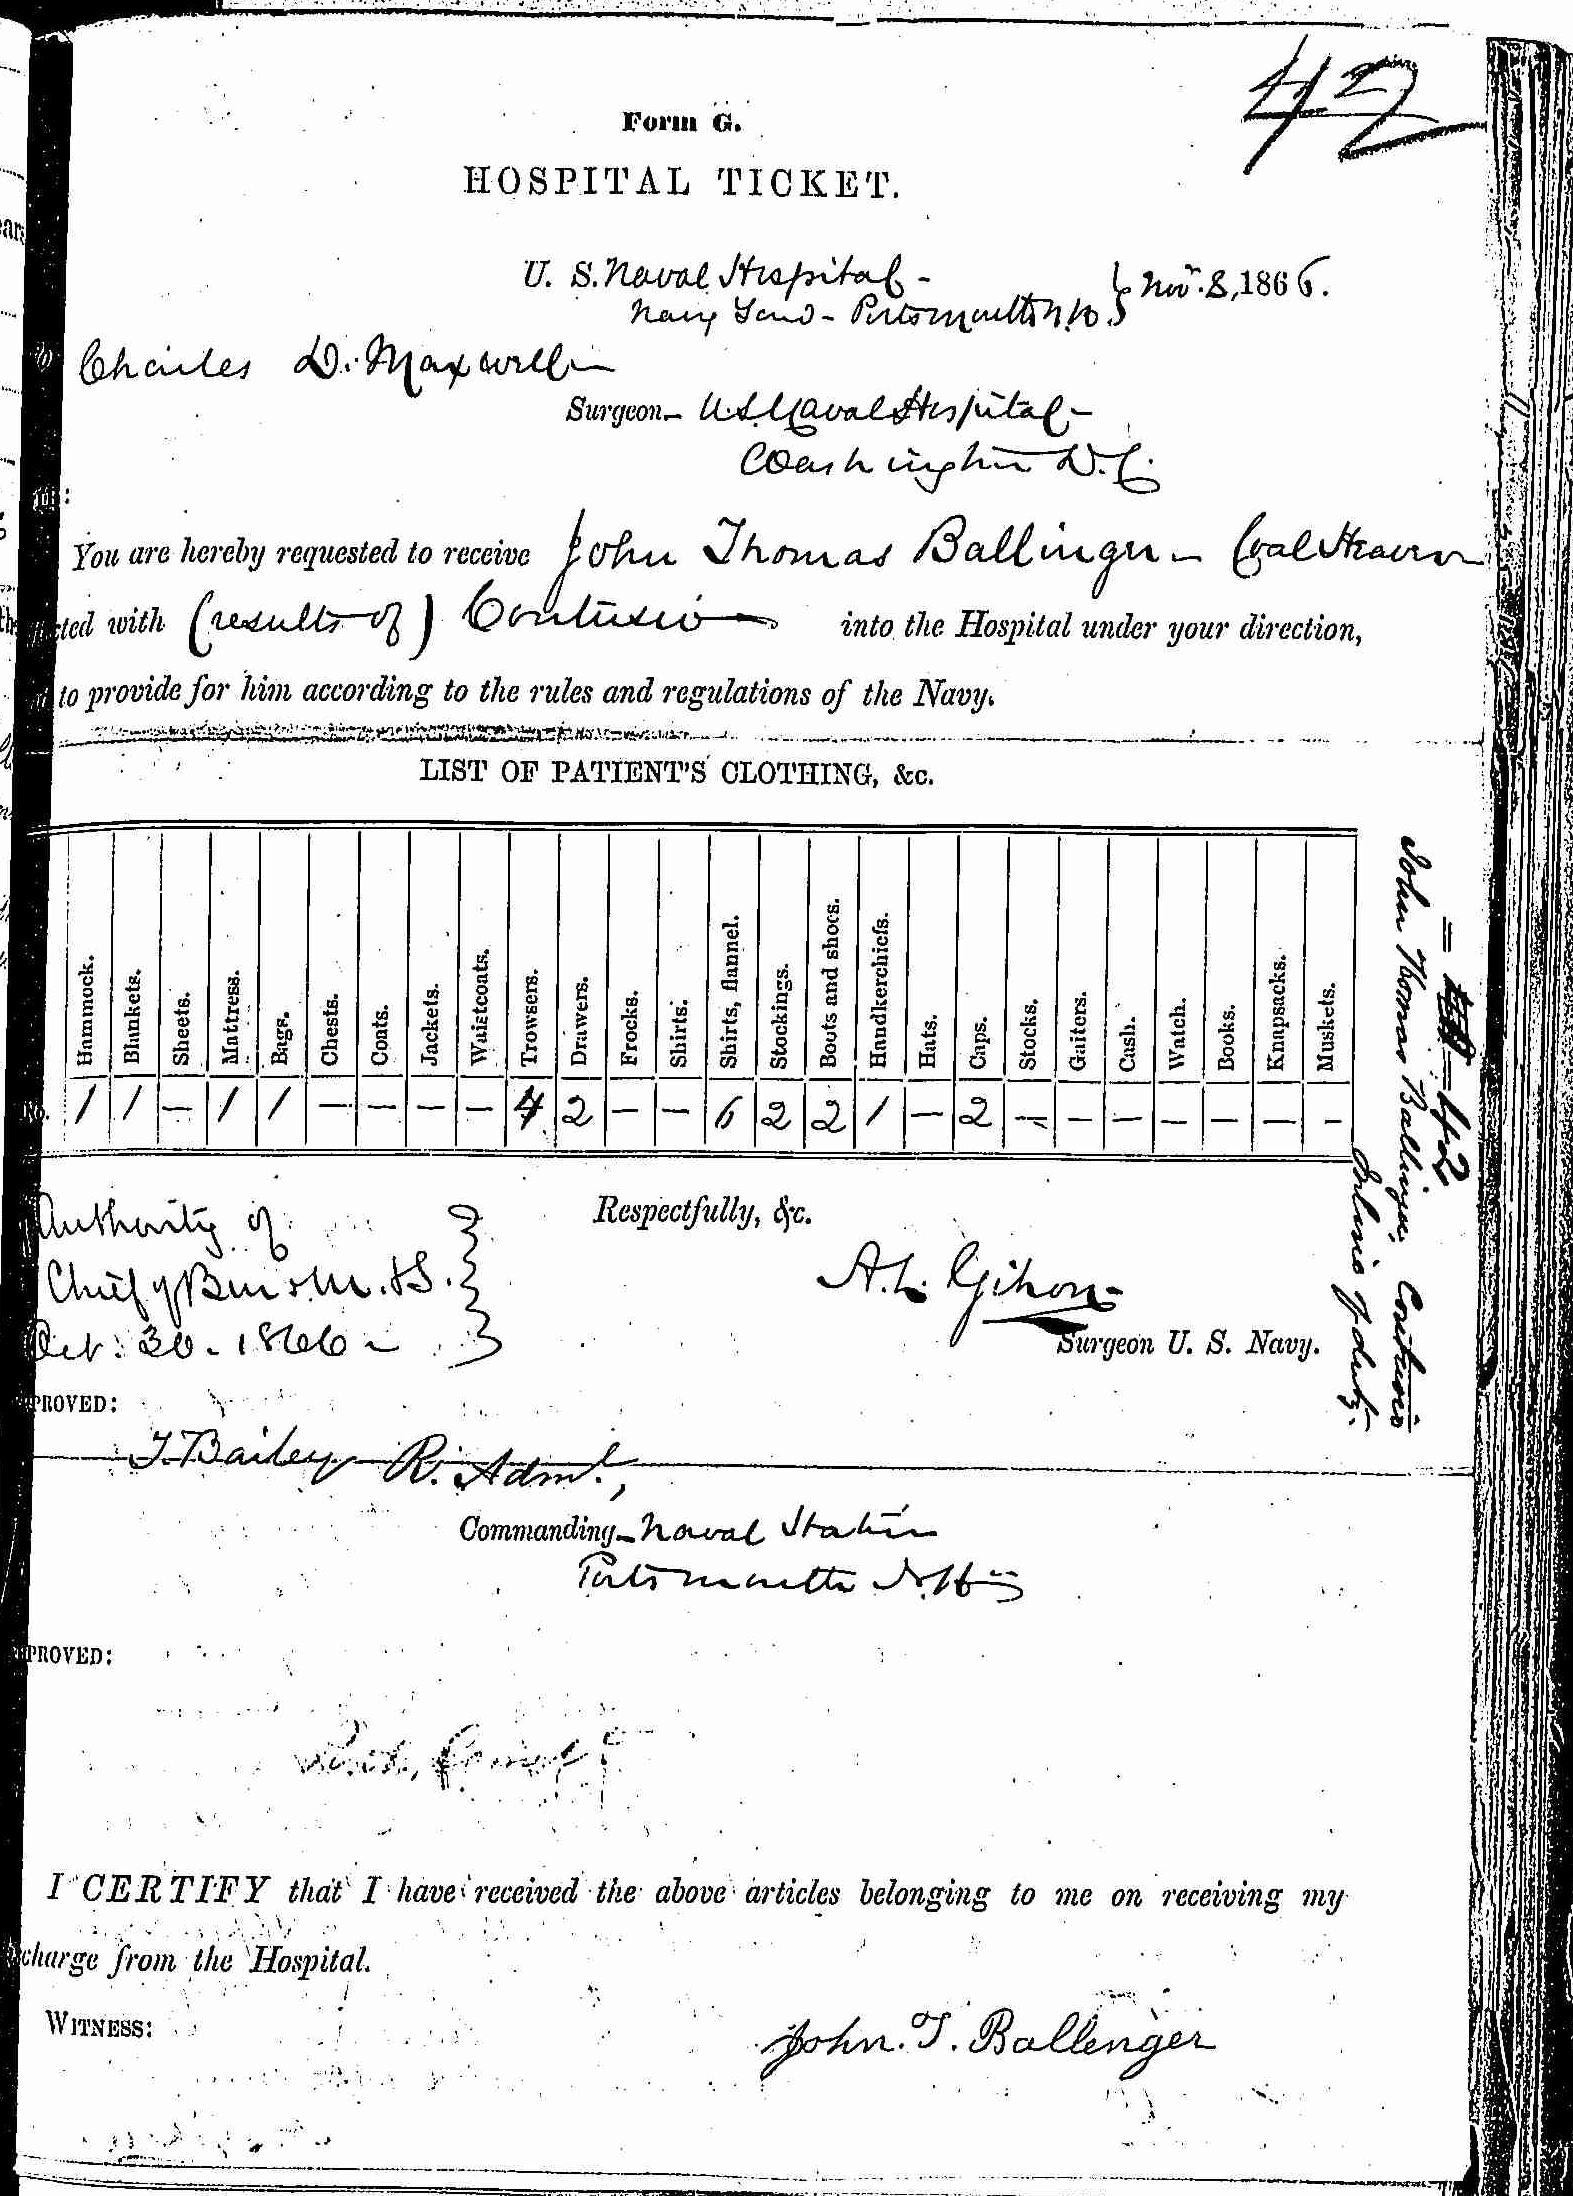 42
Form G.
HOSPITAL TICKET.
U. S. Naval Hospital -
Navy Yard - Portsmouth N.H. } Nov. 8, 1866.
Charles D. Maxwell
Surgeon - U.S. Naval Hospital -
Washington D.C.
You are hereby requested to receive John Thomas Ballinger - Coal Heaver
cted with (results of) Contusio into the Hospital under your direction,
to provide for him according to the rules and regulations of the Navy.
LIST OF PATIENT'S CLOTHING, &c.
Hammock. Blankets. Sheets. Mattress. Bags. Chests. Coats. Jackets. Waistcoats. Trowsers. Drawers. Frocks. Shirts. Shirts, flannel. Stockings. Boots and shoes. Handkerchiefs. Hats. Caps. Stocks. Gaiters. Cash. Watch. Books. Knapsacks. Muskets.
No. 1 1 — 1 1 — — — — 4 2 — — 6 2 2 1 — 2 — — — — — — —
= 42
John Thomas Ballinger. Contusio
In line of duty.
Authority of
Chief of Bu. of M. & S.
Oct. 30 - 1866 -
Respectfully, &c.
A. L. Gihon
Surgeon U. S. Navy.
PROVED:
T. Bailey R. Adml.,
Commanding - Naval Station
Portsmouth N.H.
PROVED:
I CERTIFY that I have received the above articles belonging to me on receiving my
charge from the Hospital.
WITNESS:
John. T. Ballenger